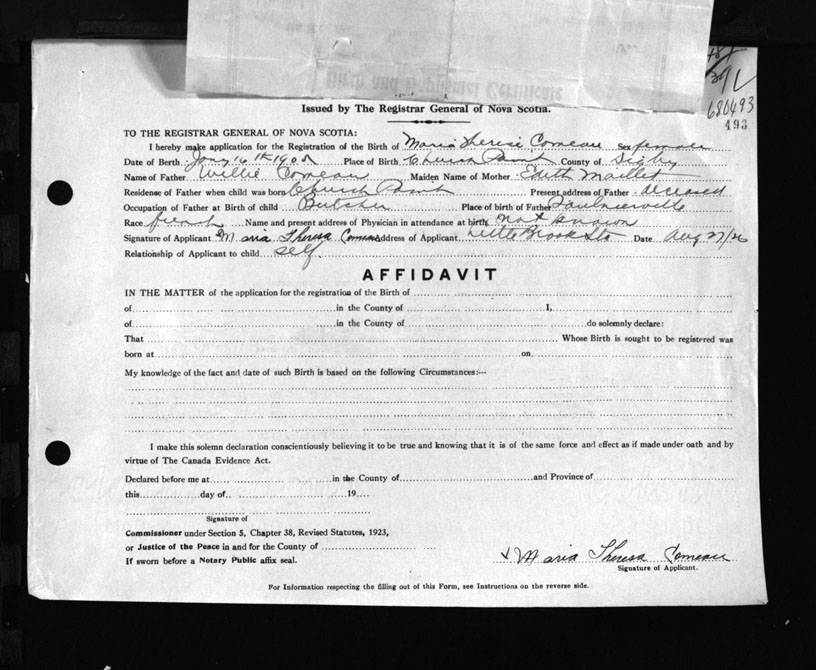 Birth and Baptismal Certificate
Issued by The Registrar General of Nova Scotia.
680493
493
TO THE REGISTRAR GENERAL OF NOVA SCOTIA:
I hereby make application for the Registration of the Birth of Maria Therese Comeau Sex female
Date of Berth Jany 16th 190 Place of Birth Church Point County of Digby
Name of Father Willie Comeau Maiden Name of Mother Edith Maillet
Residense of Father when child was born Church Point Present address of Father deceased
Occupation of Father at Birth of child Butcher Place of birth of Father Saulnierville
Race french Name and present address of Physician in attendance at birth not known
Signature of Applicant Maria Theresa Comeau Address of Applicant Little Brook Sta Date Aug 27/26
Relationship of Applicant to child self.
AFFIDAVIT
IN THE MATTER of the application for the registration of the Birth of
of in the County of I,
of in the County of do solemnly declare:
That Whose Birth is sought to be registered was
born at on
My knowledge of the fact and date of such Birth is based on the following Circumstances:--
I make this solemn declaration conscientiously believing it to be true and knowing that it is of the same force and effect as if made under oath and by
virtue of The Canada Evidence Act.
Declared before me at in the County of and Province of
this day of 19
Signature of
Commissioner under Section 5, Chapter 38, Revised Statutes, 1923,
or Justice of the Peace in and for the County of
If sworn before a Notary Public affix seal.
x Maria Theresa Comeau
Signature of Applicant.
For Information respecting the filling out of this Form, see Instructions on the reverse side.